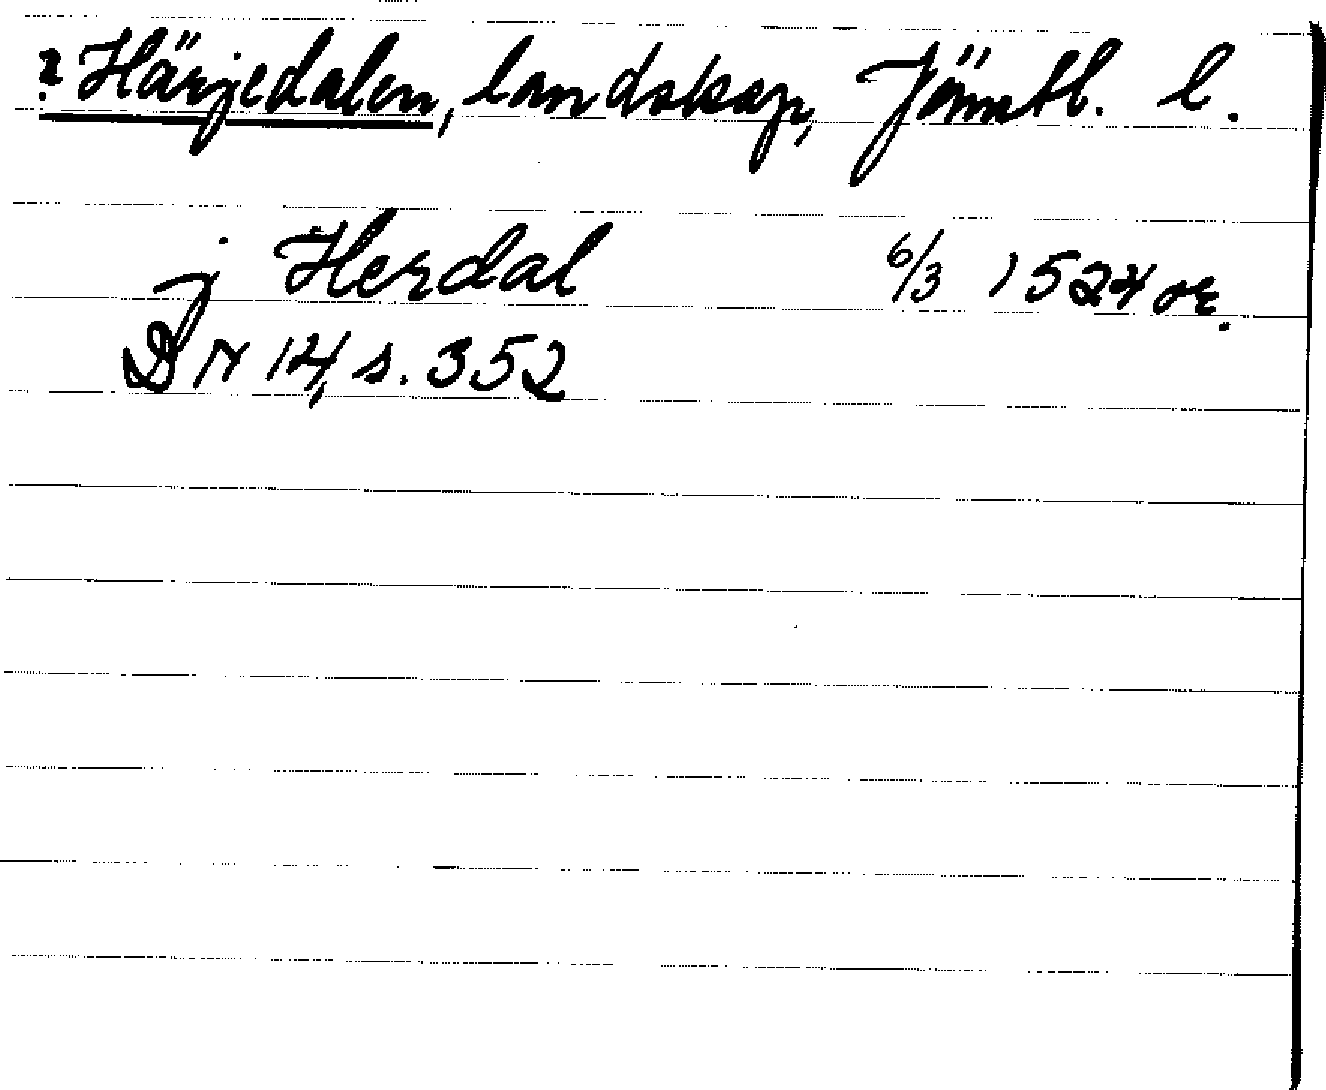 ? Härjedalen, landskap, Jämtl. l.
j Herdal 6/3 1524 or.
DN 14, s. 352